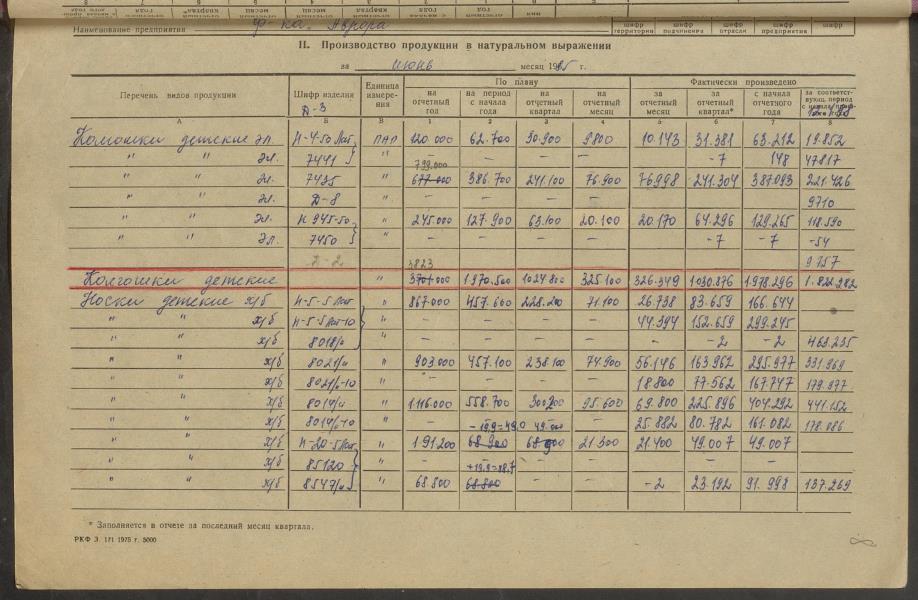 Наименование предприятия ф-ка. Аврора шифр территории шифр отрасли шифр предприятия шифр
II. Производство продукции в натуральном выражении
за июнь месяц 1985 г.
Перечень видов продукции Шифр изделия Единица измерения По плану Фактически произведено
на отчетный год на период с начала года на отчетный квартал на отчетный месяц за отчетный месяц за отчетный квартал* с начала отчетного года за соответствующ. период
Д-3
А Б В 1 2 3 4 5 6 7 8
Колготки детские эл. Н-4-50 Лат. ПАР 120.000 62.700 30.900 9800 10.143 31.381 63.212 19.852
" " эл. 7441 " – – – – -7 148 47817
799.000
" " эл. 7435 " 677.000 386.700 241.100 76.900 76.998 241.304 387.093 221.426
" " эл. Д-8 " – – – – – – – 9710
" " эл. Н 945-50 " 245.000 127.900 63.100 20.100 20.170 64.296 129.265 118.590
" " эл. 7450 " – – – – – -7 -7 -54
Д-2 3823 9757
Колготки детские " 3701.000 1.970.500 1024.800 325.100 326.349 1030.876 1978.296 1.822.282
Носки детские х/б Н-5-5 Лат " 867.000 457.600 228.200 71.100 26.738 83.659 166.644
" " х/б Н-5-5 Лат-10 " – – – – 44.394 152.659 299.245
" " х/б 8018/0 " – – – – – -2 -2 463.235
" " х/б 8021/0 " 903.000 457.100 238.100 74.900 56.146 163.962 295.977 331.969
" " х/б 8021/0-10 – – – – 18.800 77.562 167.747 179.977
" " х/б 8014/0 " 1.116.000 558.700 300.200 95.600 69.800 225.896 404.292 441.152
" " х/б 8014/0-10 " – -19,9=49,0 49.000 – 25.882 80.782 161.082 178.086
" " х/б Н-20-5 Лат " 191.200 68.900 68.900 21.300 21.400 49.007 49.007
" " х/б 85120 " – – – – – –
" " х/б 8547/0 " 68.800 68.800 – – -2 23.192 91.998 137.269
* Заполняется в отчете за последний месяц квартала.
РКФ З. 171 1975 г. 5000